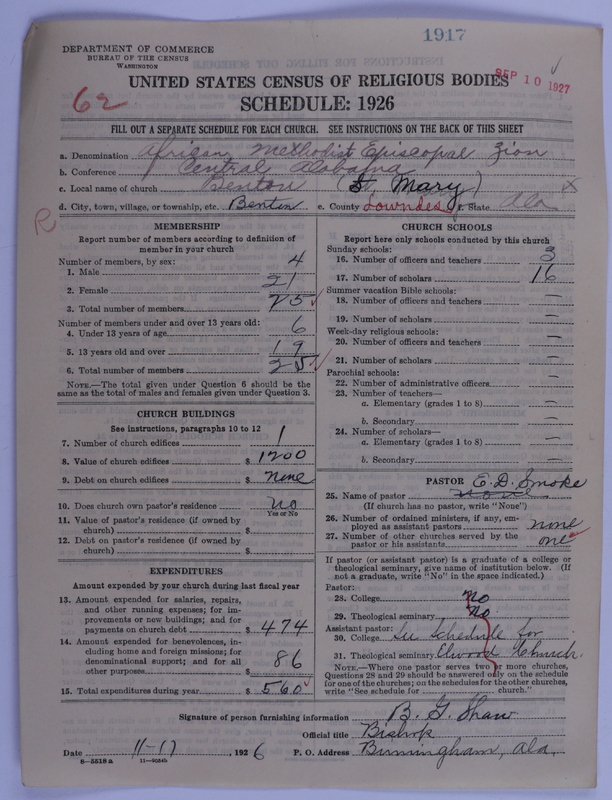 1917
DEPARTMENT OF COMMERCE
BUREAU OF THE CENSUS
WASHINGTON
SEP 10 1927
UNITED STATES CENSUS OF RELIGIOUS BODIES
SCHEDULE: 1926
62
FILL OUT A SEPARATE SCHEDULE FOR EACH CHURCH. SEE INSTRUCTIONS ON THE BACK OF THIS SHEET
a. Denomination African Methodist Episcopal Zion
b. Conference Central Alabama
c. Local name of church Benton (St. Mary) x
d. City, town, village, or township, etc. Benton e. County Lowndes f. State Ala
R
MEMBERSHIP
Report number of members according to definition of
member in your church
Number of members, by sex:
1. Male 4
2. Female 21
3. Total number of members 25
Number of members under and over 13 years old:
4. Under 13 years of age 6
5. 13 years old and over 19
6. Total number of members 25
NOTE.—The total given under Question 6 should be the
same as the total of males and females given under Question 3.
CHURCH BUILDINGS
See instructions, paragraphs 10 to 12
7. Number of church edifices 1
8. Value of church edifices $ 1200
9. Debt on church edifices $ None
10. Does church own pastor's residence No
Yes or No
11. Value of pastor's residence (if owned by
church) $
12. Debt on pastor's residence (if owned by
church) $
EXPENDITURES
Amount expended by your church during last fiscal year
13. Amount expended for salaries, repairs,
and other running expenses; for im-
provements or new buildings; and for
payments on church debt $ 474
14. Amount expended for benevolences, in-
cluding home and foreign missions; for
denominational support; and for all
other purposes $ 86
15. Total expenditures during year $ 560
CHURCH SCHOOLS
Report here only schools conducted by this church
Sunday schools:
16. Number of officers and teachers 3
17. Number of scholars 16
Summer vacation Bible schools:
18. Number of officers and teachers —
19. Number of scholars —
Week-day religious schools:
20. Number of officers and teachers —
21. Number of scholars —
Parochial schools:
22. Number of administrative officers —
23. Number of teachers—
a. Elementary (grades 1 to 8) —
b. Secondary —
24. Number of scholars—
a. Elementary (grades 1 to 8) —
b. Secondary —
PASTOR E. D. Smoke
25. Name of pastor None
(If church has no pastor, write "None")
26. Number of ordained ministers, if any, em-
ployed as assistant pastors none
27. Number of other churches served by the
pastor or his assistants one
If pastor (or assistant pastor) is a graduate of a college or
theological seminary, give name of institution below. (If
not a graduate, write "No" in the space indicated.)
Pastor:
28. College No
29. Theological seminary No
Assistant pastor:
30. College See Schedule for
31. Theological seminary Elwood Church.
NOTE.—Where one pastor serves two or more churches,
Questions 28 and 29 should be answered only on the schedule
for one of the churches; on the schedules for the other churches,
write "See schedule for church."
Signature of person furnishing information B. G. Shaw
Official title Bishop
Date 11-17, 1926 P. O. Address Birmingham, Ala.
8-5518 a 11-9034b